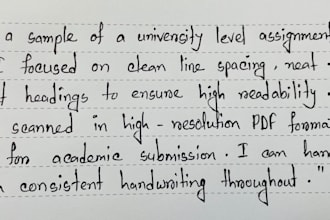 a sample of a university level assignment
focused on clean line spacing, neat
headings to ensure high readability.
scanned in high-resolution PDF forma
for academic submission. I can han
consistent handwriting throughout."